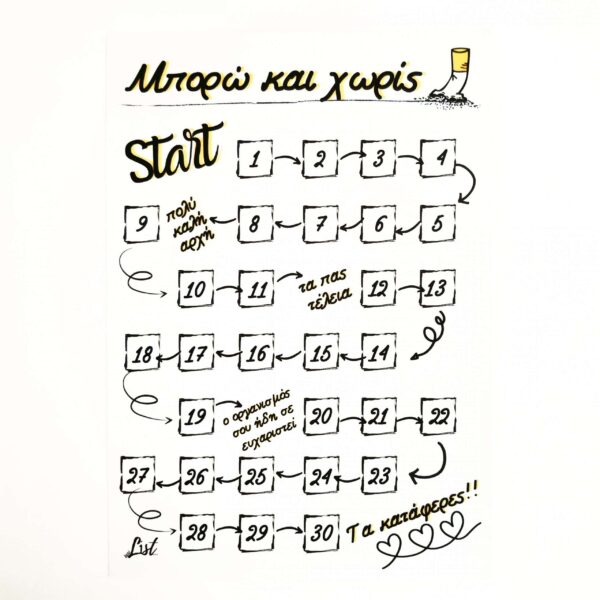 Μπορώ και χωρίς
Start 1 2 3 4
9 πολύ καλή αρχή 8 7 6 5
10 11 τα πας τέλεια 12 13
18 17 16 15 14
19 ο οργανισμός σου ήδη σε ευχαριστεί 20 21 22
27 26 25 24 23
28 29 30 Τα κατάφερες!!
List